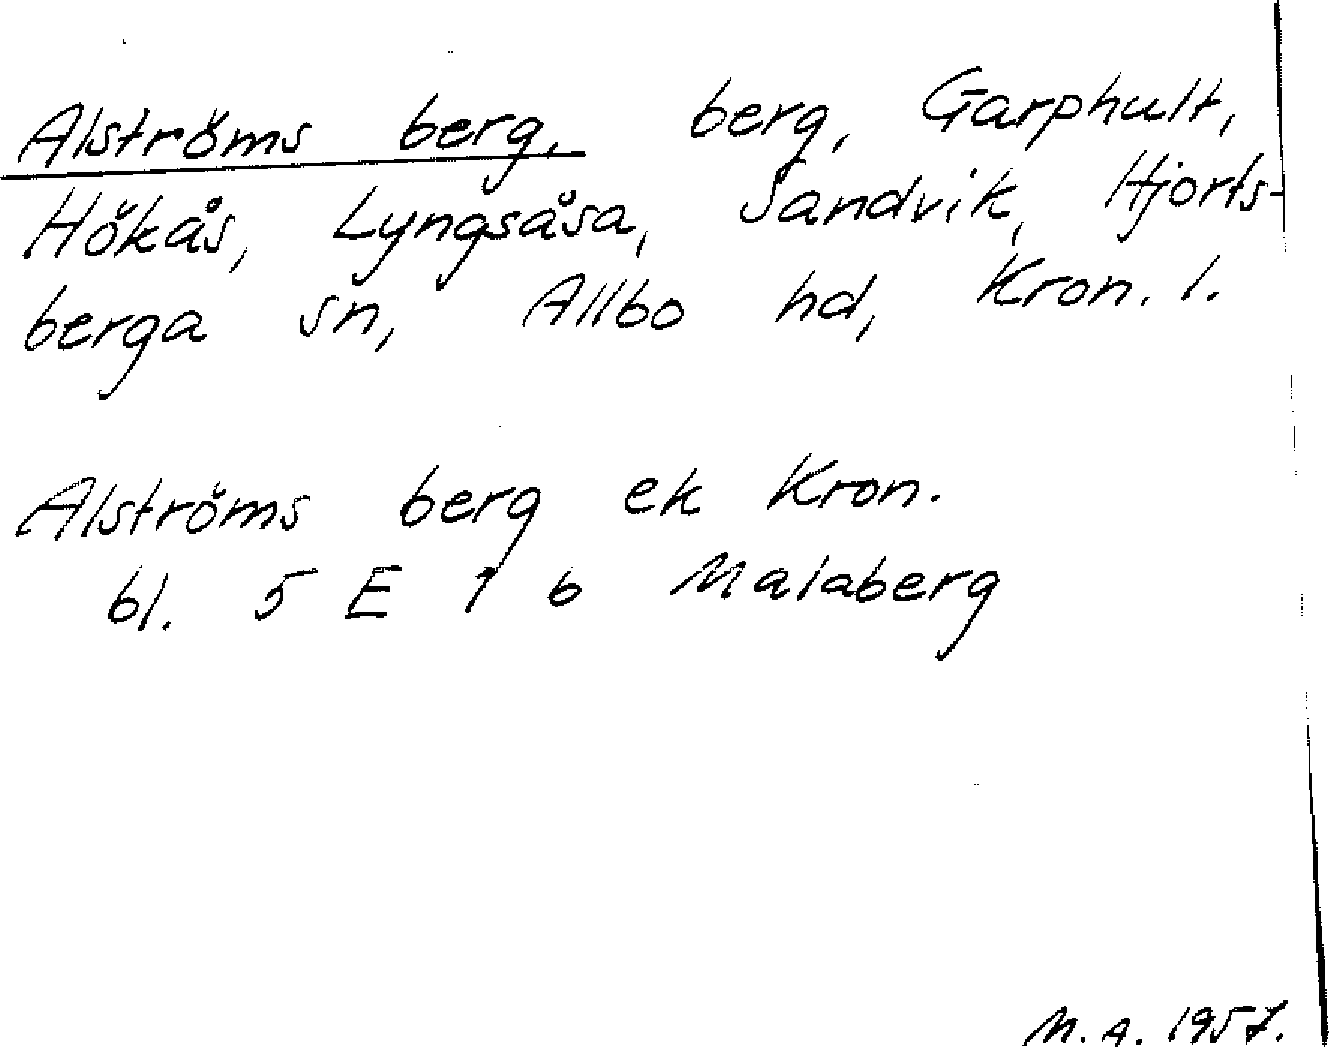 Alströms berg, berg, Garphult,
Hökås, Lyngsåsa, Sandvik, Hjorts-
berga sn, Allbo hd, Kron. l.
Alströms berg ek Kron.
bl. 5 E 1 b Malaberg
M.A. 1957.